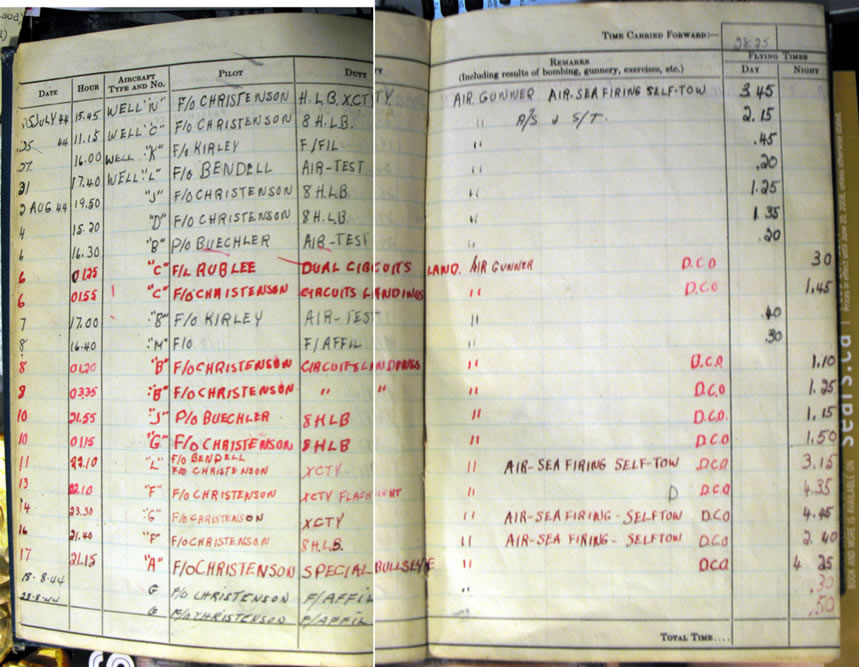 TIME CARRIED FORWARD:— 28.25
DATE HOUR AIRCRAFT TYPE AND NO. PILOT DUTY REMARKS (Including results of bombing, gunnery, exercises, etc.) FLYING TIMES DAY NIGHT
JULY 44 15.45 WELL "N" F/O CHRISTENSON H.L.B. XCTY. AIR GUNNER AIR-SEA FIRING SELF-TOW 3 45
25 44 11.15 WELL "C" F/O CHRISTENSON 8 H.L.B. " A/S & S/T. 2.15
27. 16.00 WELL "K" F/O KIRLEY F/FIL " .45
31 17.40 WELL "L" F/O BENDELL AIR-TEST " .20
2 AUG 44 19.50 "J" F/O CHRISTENSON 8 H.L.B " 1.25
4 15.20 "D" F/O CHRISTENSON 8 H.L.B. " 1.35
6 16.30 "B" P/O BUECHLER AIR-TEST " .20
6 0125 "C" F/L RUBLEE DUAL CIRCUITS LAND. AIR GUNNER D.C.O 30
6 0155 "C" F/O CHRISTENSON CIRCUITS LANDINGS " D.C.O 1.45
7 17.00 "B" F/O KIRLEY AIR-TEST " .40
8 16.40 "M" F/O F/AFFIL " .30
8 0120 "B" F/O CHRISTENSON CIRCUITS LANDINGS " D.C.O 1.10
8 0335 "B" F/O CHRISTENSON " " " D.C.O 1.25
10 21.55 "J" P/O BUECHLER 8 HLB " D.C.O. 1.15
10 0115 "G" F/O CHRISTENSON 8 HLB " D.C.O 1.50
11 22.10 "L" F/O BENDELL F/O CHRISTENSON XCTY " AIR-SEA FIRING SELF-TOW D.C.O 3.15
13 22.10 "F" F/O CHRISTENSON XCTY " D D.C.O 4.35
14 23.30 "G" F/O CHRISTENSON XCTY " AIR-SEA FIRING-SELFTOW D.C.O
16 21.40 "F" F/O CHRISTENSON 8 H.L.B. " AIR-SEA FIRING-SELFTOW D.C.O 2.40
17 21.15 "A" F/O CHRISTENSON SPECIAL BULLSEYE " D.C.O 4 25
18.8.44 G F/O CHRISTENSON F/AFFIL .30
28.8.44 G F/O CHRISTENSON F/AFFIL .50
TOTAL TIME....
sears.ca